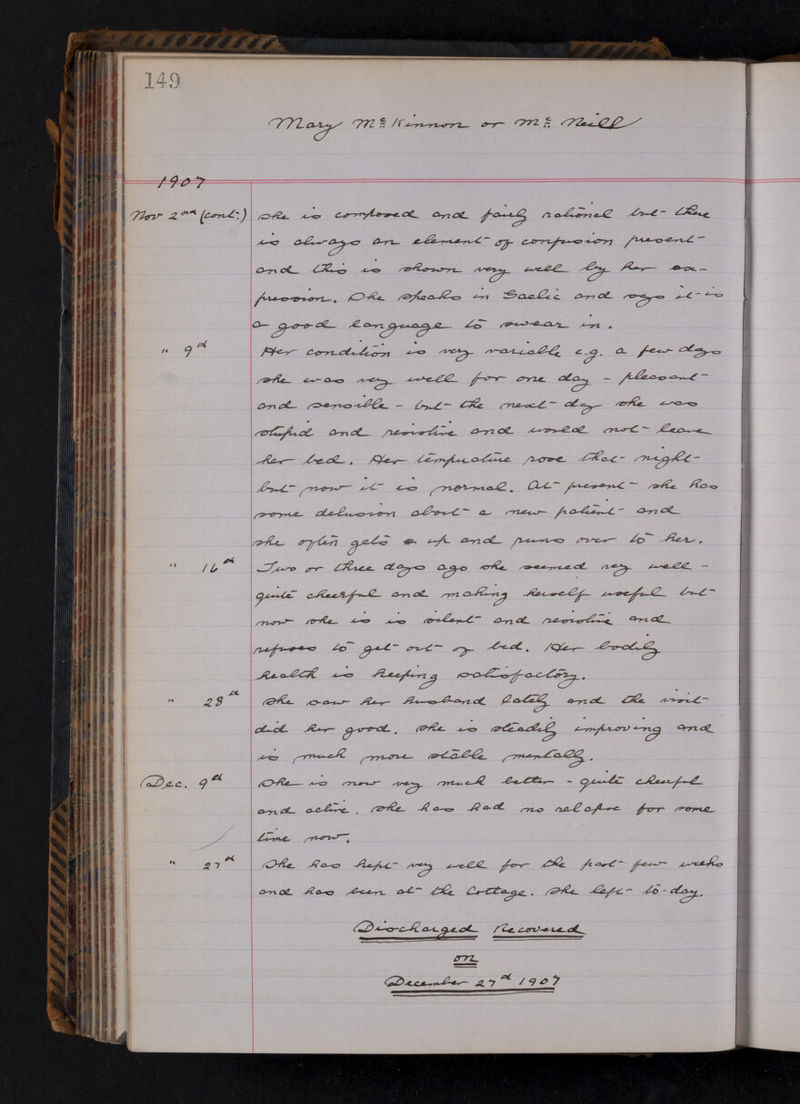 149
Mary McKinnon or McNeill
1907
Nov 2nd (cont:) she is composed and fairly rational but there
is always an element of confusion present
and this is shown very well by her ex-
pression. She speaks in Gaelic and says it is
a good language to swear in.
" 9th Her condition is very variable e.g. a few days
she was very well for one day - pleasant
and sensible - but the next day she was
stupid and resistive and would not leave
her bed. Her temperature rose that night
but now it is normal. At present she has
some delusion about a new patient and
she often gets up and runs over to her.
" 16th Two or three days ago she seemed very well -
quite cheerful and making herself useful but
now she is is silent and resistive and
refuses to get out of bed. Her bodily
health is keeping satisfactory.
" 28th She saw her husband lately and the visit
did her good. She is steadily improving and
is much more stable mentally.
Dec. 9th She is now very much better - quite cheerful
and active. She has had no relapse for some
time now.
" 27th She has kept very well for the past few weeks
and has been at the Cottage. She left to-day.
Discharged Recovered
on
December 27th 1907